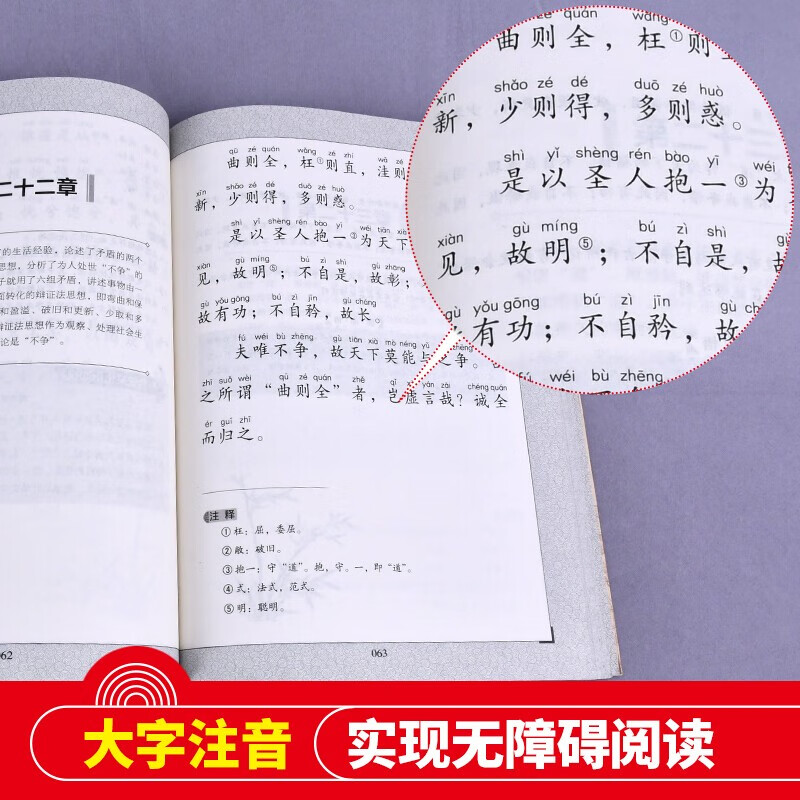 二十二章
的生活经验，论述了矛盾的两个
思想，分析了为人处世“不争”的
子就用了六组矛盾，讲述事物由一
面转化的辩证法思想，即弯曲和保
和盈溢、破旧和更新、少取和多
辩证法思想作为观察、处理社会生
论是“不争”。
062
qū zé quán wǎng zé zhí wā zé
曲则全，枉①则直，洼则
xīn shǎo zé dé duō zé huò
新，少则得，多则惑。
shì yǐ shèng rén bào yī wéi tiān xià
是以圣人抱一③为天下
xiàn gù míng bú zì shì gù zhāng
见，故明⑤；不自是，故彰；
gù yǒu gōng bú zì jīn gù cháng
故有功；不自矜，故长。
fú wéi bù zhēng gù tiān xià mò néng yǔ zhī zhēng
夫唯不争，故天下莫能与之争。
zhī suǒ wèi qū zé quán zhě qǐ xū yán zāi chéng quán
之所谓“曲则全”者，岂虚言哉？诚全
ér guī zhī
而归之。
注释
①枉：屈，委屈。
②敝：破旧。
③抱一：守“道”。抱，守。一，即“道”。
④式：法式，范式。
⑤明：聪明。
063
zé quán wǎng
曲则全，枉①则
xīn shǎo zé dé duō zé huò
新，少则得，多则惑。
shì yǐ shèng rén bào yī wéi
是以圣人抱一③为
xiàn gù míng bú zì shì
见，故明⑤；不自是，故
gù yǒu gōng bú zì jīn gù
故有功；不自矜，故
fú wéi bù zhēng
大字注音 实现无障碍阅读